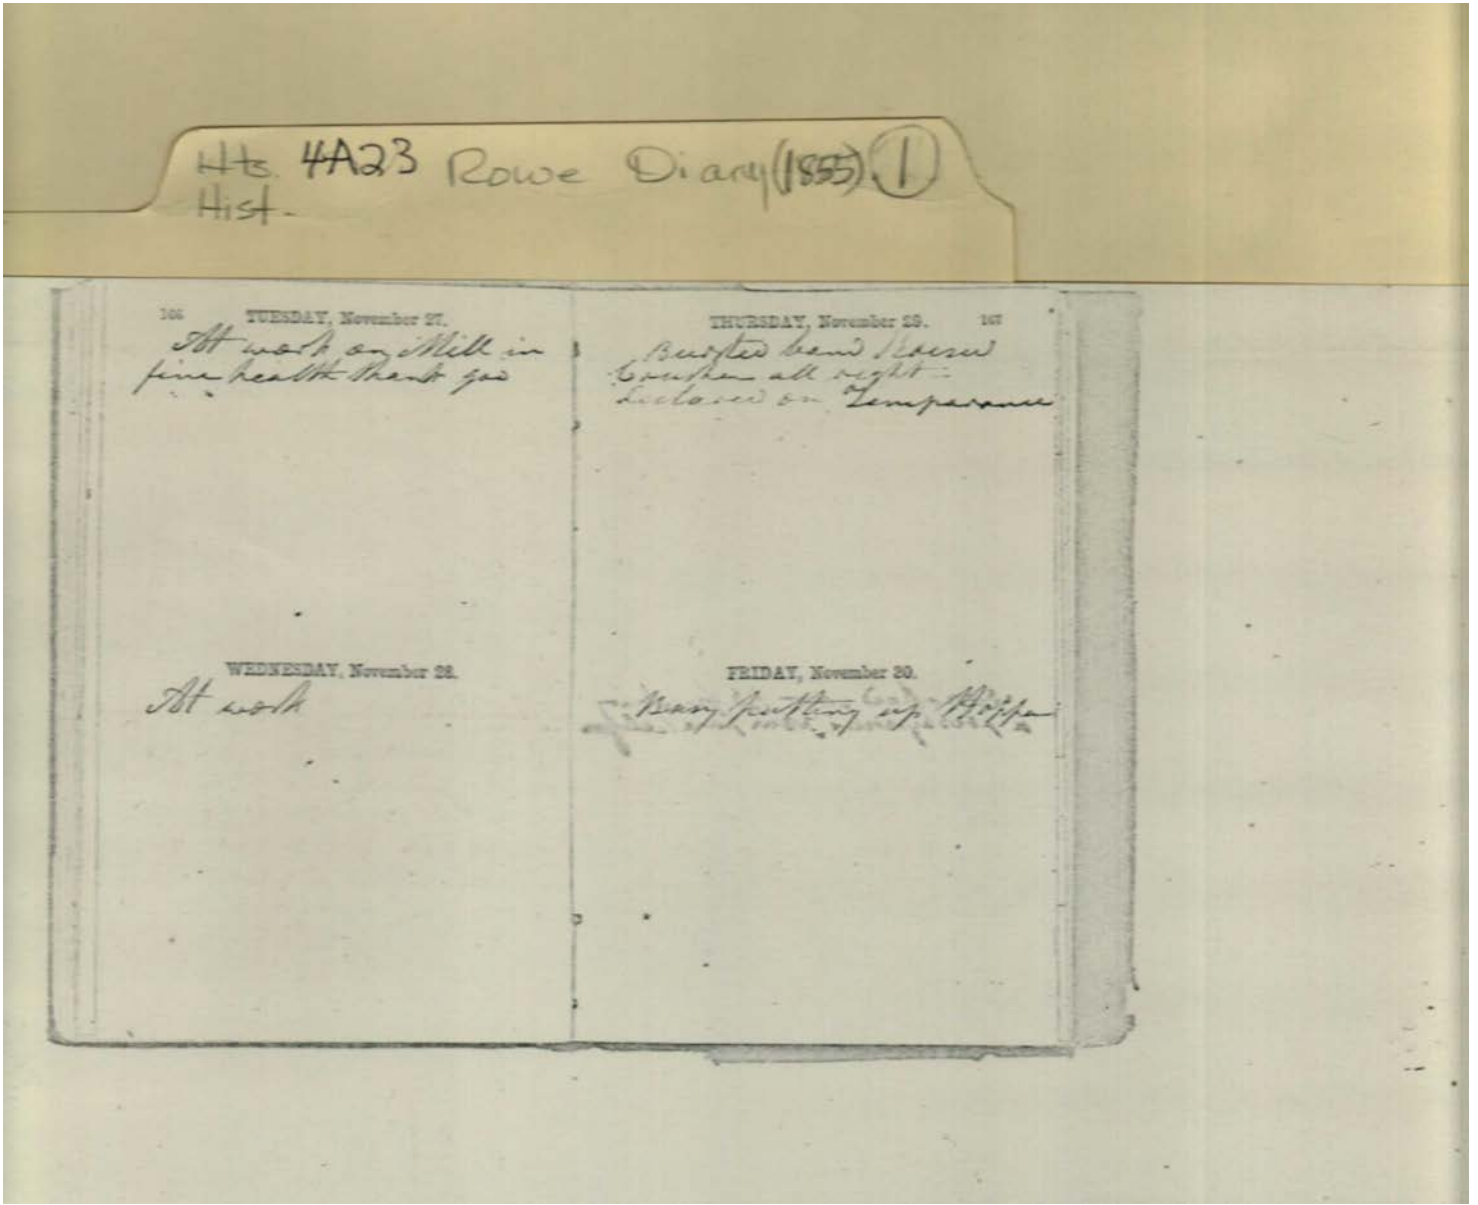 Hts. 4A23 Rowe Diary (1855) 1
Hist.
166 TUESDAY, November 27.
At work on Mill in
fine health thank god
WEDNESDAY, November 28.
At work
THURSDAY, November 29. 167
all right
on Temparance
FRIDAY, November 30.
Busy putting up Hopper